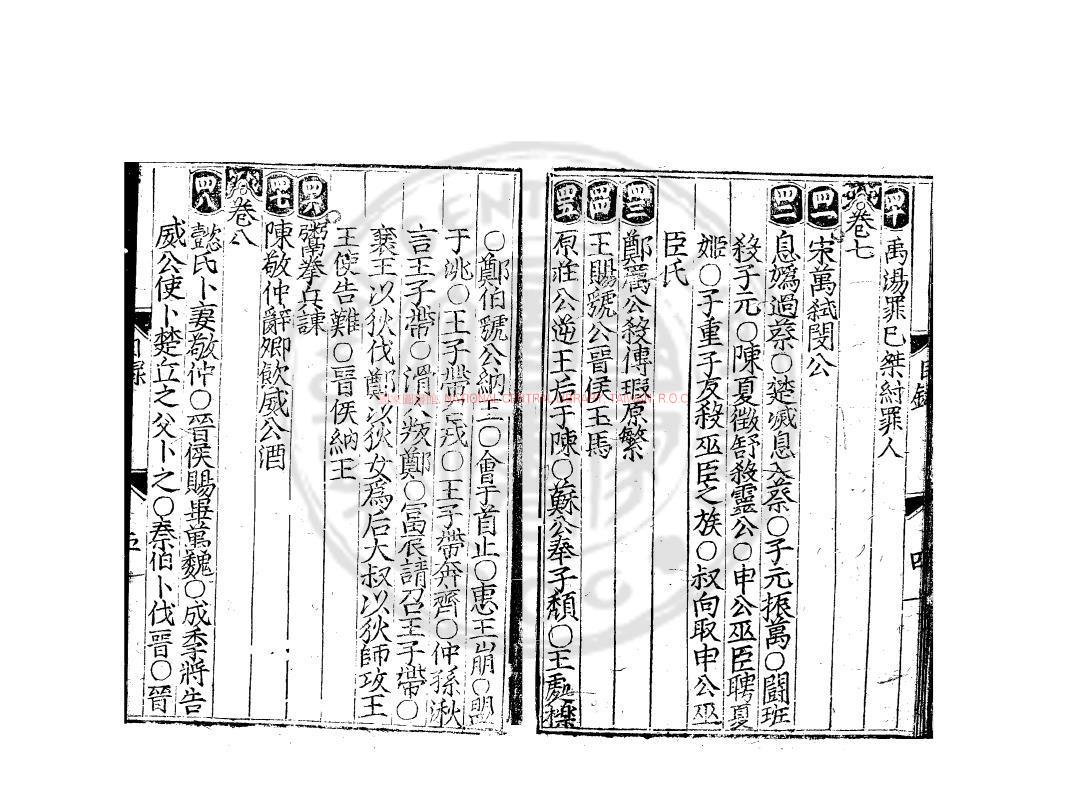 四十 禹湯罪已桀紂罪人
卷七
四一 宋萬弑閔公
四二 息媯過蔡〇楚滅息入蔡〇子元振萬〇鬪班
殺子元〇陳夏徵舒殺靈公〇申公巫臣聘夏
姬〇子重子反殺巫臣之族〇叔向取申公巫
臣氏
四三 鄭厲公殺傅瑕原繁
四四 王賜虢公晉侯玉馬
四五 原莊公逆王后于陳〇蘇公奉子頽〇王處櫟
〇鄭伯虢公納王〇會于首止〇惠王崩〇盟
于洮〇王子帶召戎〇王子帶奔齊〇仲孫湫
言王子帶〇滑人叛鄭〇富辰請召王子帶〇
襄王以狄伐鄭以狄女爲后大叔以狄師攻王
王使告難〇晉侯納王
四六 鬻拳兵諫
四七 陳敬仲辭卿飲威公酒
卷八
四八 懿氏卜妻敬仲〇晉侯賜畢萬魏〇成季將告
威公使卜楚丘之父卜之〇秦伯卜伐晉〇晉
目録 四
目録 五
NATIONAL CENTRAL LIBRARY, TAIWAN R.O.C